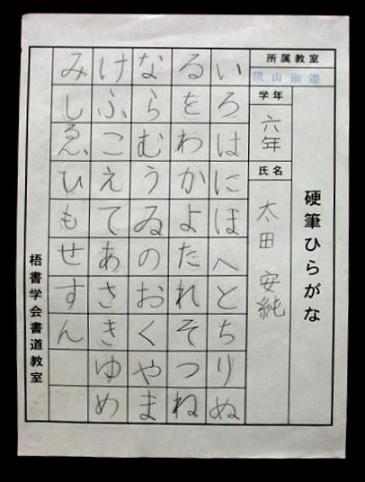 硬筆ひらがな
所属教室
学年
六年
氏名
太田 安純
いろはにほへとちりぬ
るをわかよたれそつね
ならむうゐのおくやま
けふこえてあさきゆめ
みしゑひもせすん
梧書学会書道教室